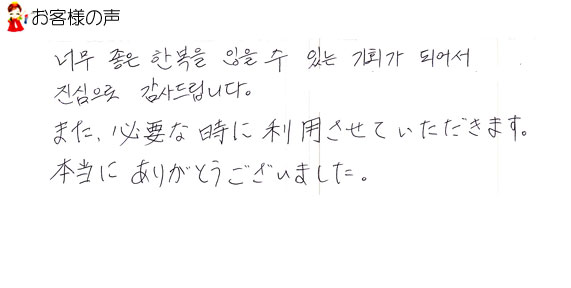 お客様の声
너무 좋은 한복을 입을 수 있는 기회가 되어서
진심으로 감사드립니다。
また、必要な時に利用させていただきます。
本当にありがとうございました。